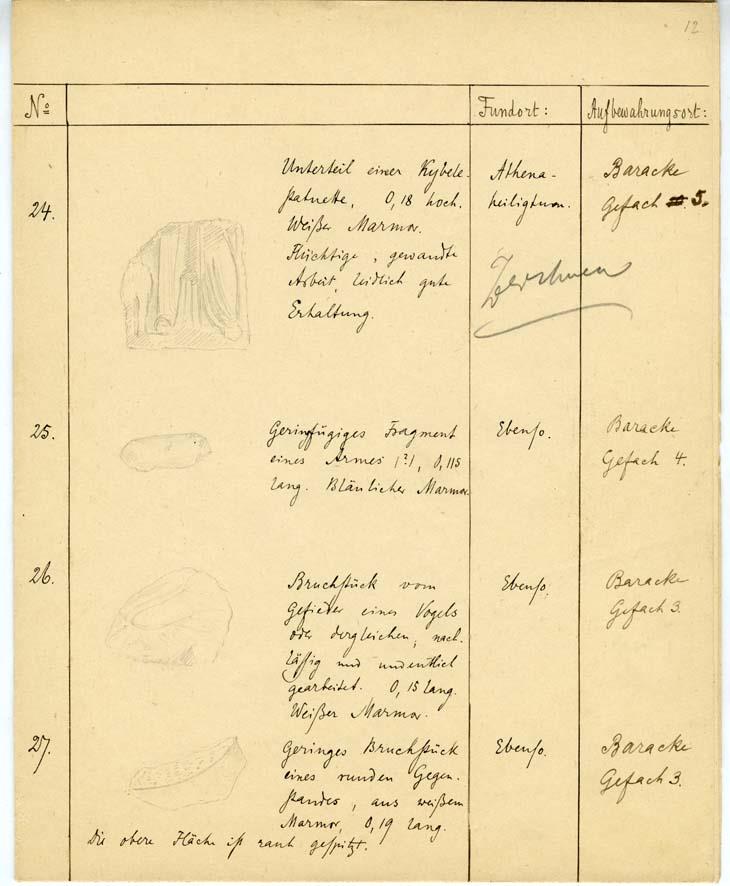 12
No Fundort: Aufbewahrungsort:
24.
Unterteil einer Kybele-
statuette, 0,18 hoch.
Weißer Marmor.
Flüchtige, gewandte
Arbeit, leidlich gute
Erhaltung.
Athena-
heiligtum.
Baracke
Gefach 5.
25.
Geringfügiges Fragment
eines Armes (?), 0,115
lang. Bläulicher Marmor.
Ebenso.
Baracke
Gefach 4.
26.
Bruchstück vom
Gefieder eines Vogels
oder dergleichen, nach-
lässig und undeutlich
gearbeitet. 0,15 lang.
Weißer Marmor.
Ebenso.
Baracke
Gefach 3.
27.
Geringes Bruchstück
eines runden Gegen-
standes, aus weißem
Marmor, 0,19 lang.
Die obere Fläche ist rauh gespitzt.
Ebenso.
Baracke
Gefach 3.